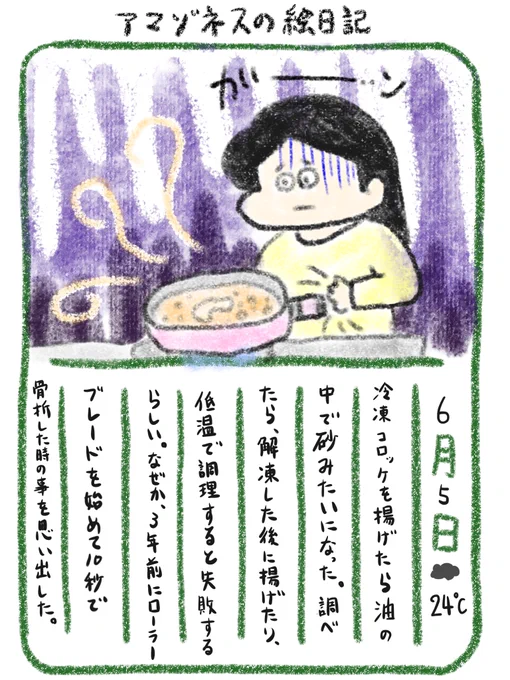 アマゾネスの絵日記
ガーーン
6月5日 24℃
冷凍コロッケを揚げたら油の
中で砂みたいになった。調べ
たら、解凍した後に揚げたり、
低温で調理すると失敗する
らしい。なぜか、3年前にローラー
ブレードを始めて10秒で
骨折した時の事を思い出した。